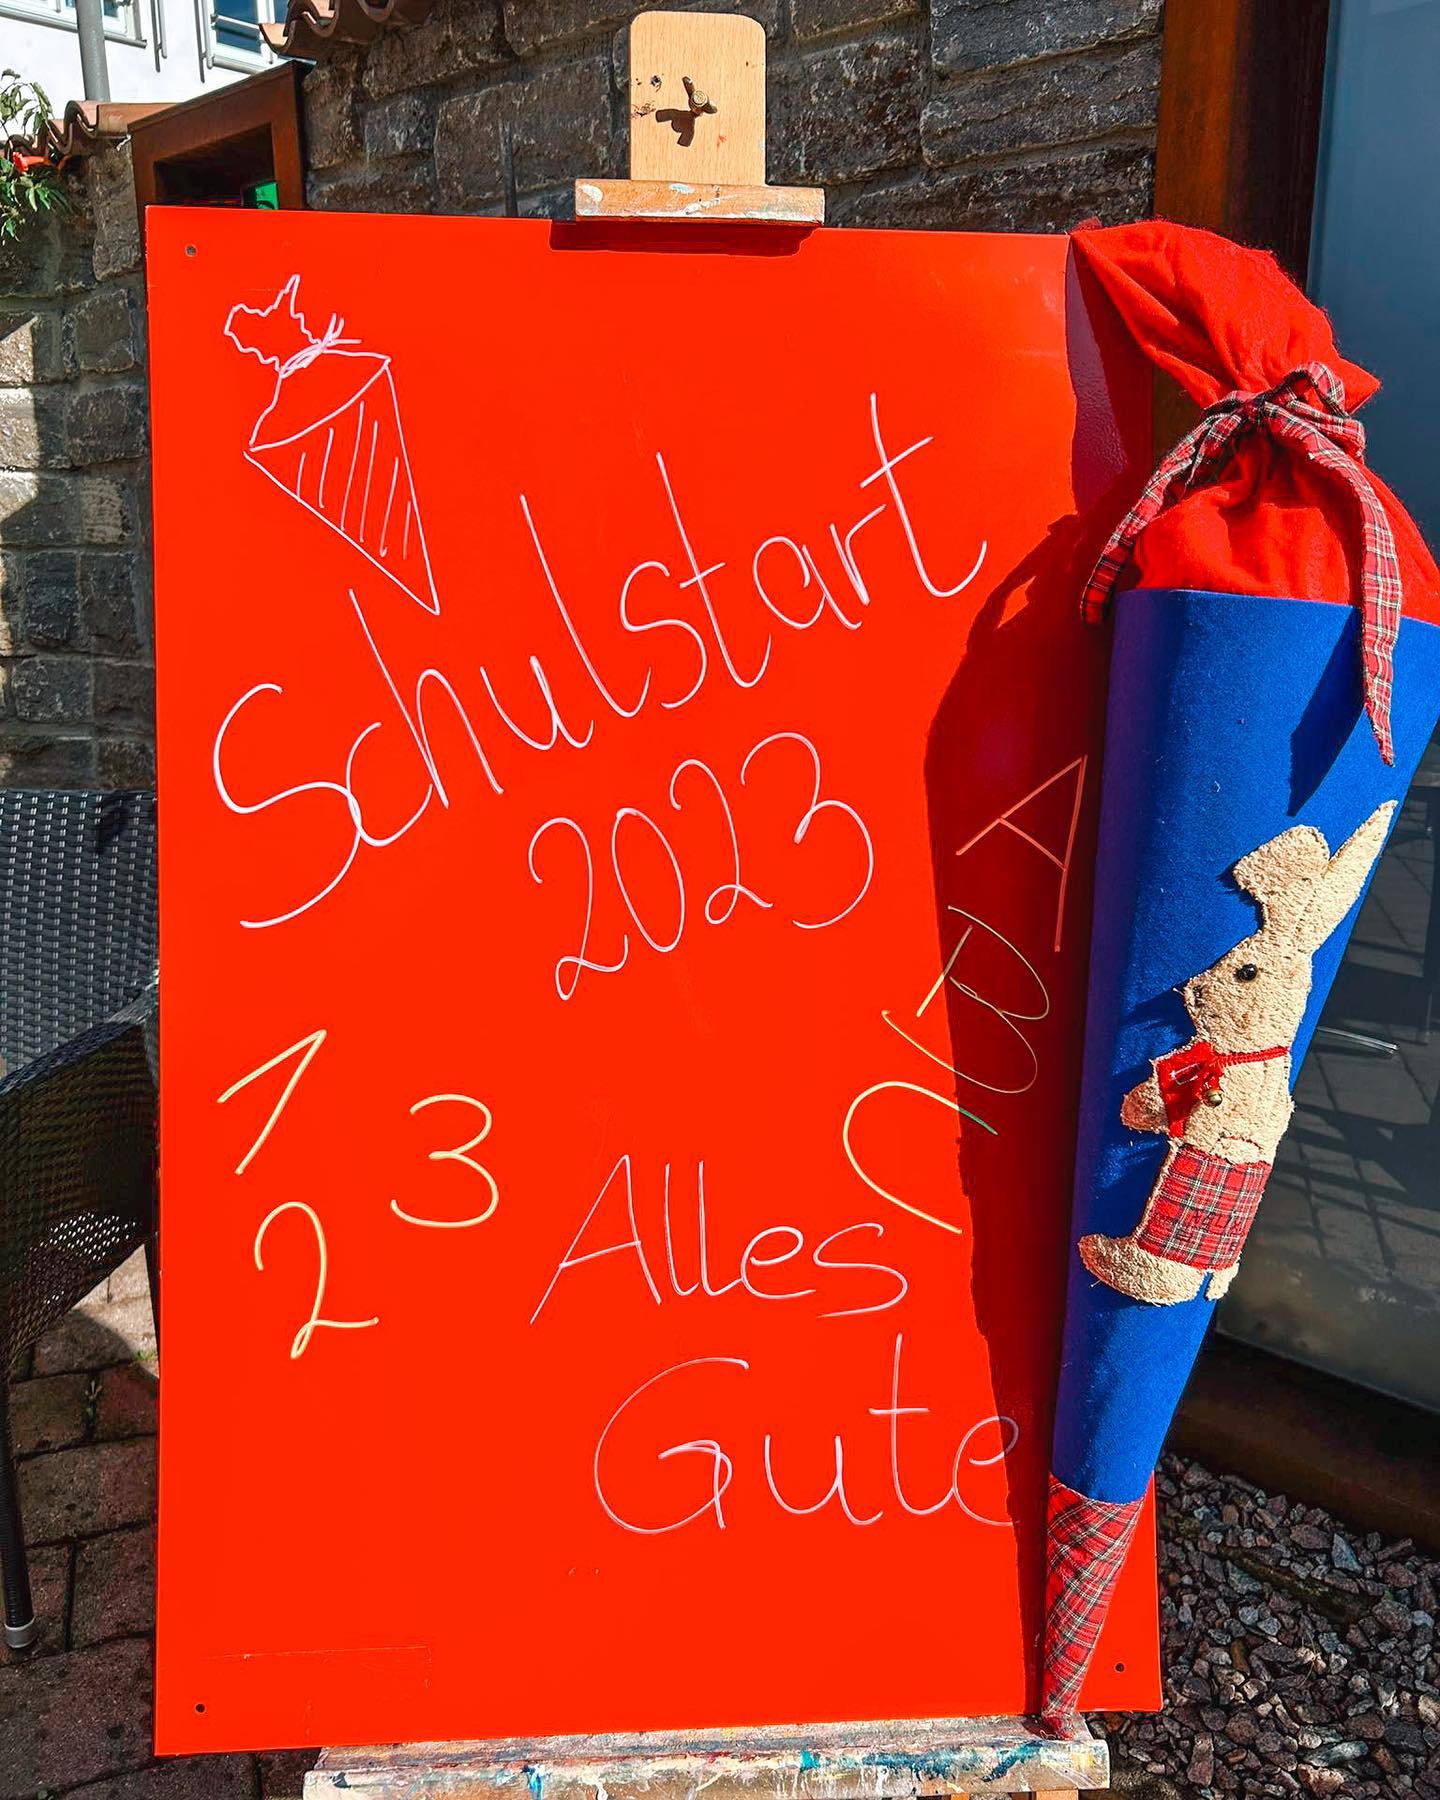 Schulstart
2023
1
2
3
A
B
C
Alles
Gute